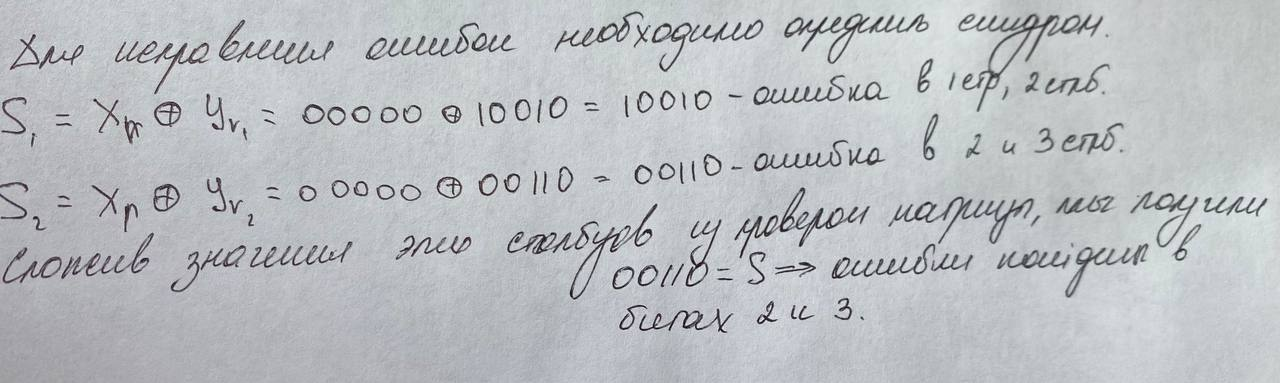 Для исправления ошибок необходимо определить синдром.
S₁ = Xₚᵣ ⊕ Yᵣ₁ = 00000 ⊕ 10010 = 10010 - ошибка в 1 стр, 2 стлб.
S₂ = Xₚ ⊕ Yᵣ₂ = 00000 ⊕ 00110 = 00110 - ошибка в 2 и 3 стлб.
Сложив значения этих столбцов из проверочн матрицы, мы получили
00110 = S => ошибки находит в
битах 2 и 3.